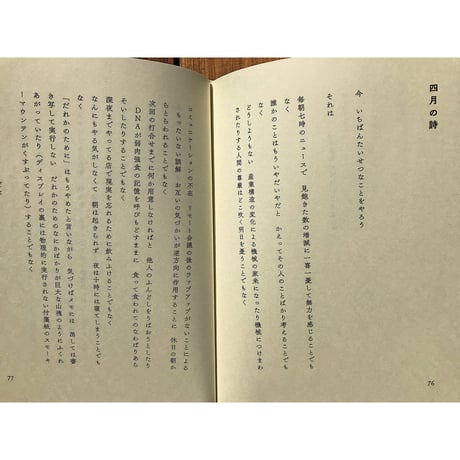 四月の詩
今 いちばんたいせつなことをやろう
それは
毎朝七時のニュースで 見飽きた数の増減に一喜一憂して無力を感じることでも
なく
誰かのことはもういやだいやだと かえってその人のことばかり考えることでも
なく
どうしようもない 産業構造の変化による機械の家来になったり機械につけまわ
されたりする人間の尊厳はどこ吹く明日を憂うことでもなく
76
コミュニケーションの不在 リモート会議の後のラップアップがないことによる
もったいない誤解 お互いの気づかいが逆方向に作用することに 休日の朝か
らとらわれることでもなく
次回の打合せまでに何か用意しなければと 他人のふんどしをうばおうとしたり
DNAが弱肉強食の記憶を呼びもどすままに 食って食われてのなわばりあら
そいしたりすることでもなく
深夜までやってる店で現実を忘れるために飲みふけることでもなく
なんにもやる気がしなくて 朝は起きられず 夜は十時には寝てしまうことでも
なく
「だれかのために」はもうやめたと言いながら 気づけばメモには 消しては書
き写して実行しない だれかのためのなにかばかりが巨大な山塊のようにふくれ
あがっていたり(ディスプレイの裏には物理的に実行されない付箋紙のスモーキ
ーマウンテンがくすぶってたり)することでもなく
77